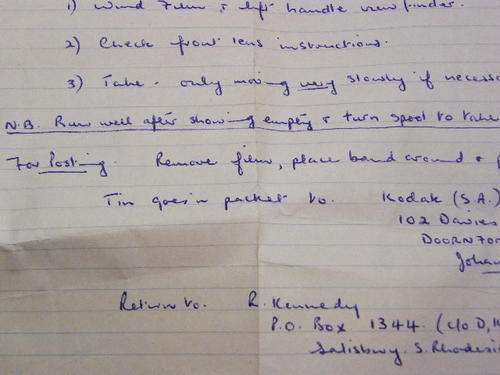 1) Wind Film & lift handle view finder.
2) Check front lens instructions.
3) Take - only moving very slowly if necessa
N.B. Run well after showing empty & turn spool to take
For Posting. Remove film, place band around &
Tin goes in packet to. Kodak (S.A.)
102 Davies
DOORNFO
Joha
Return to. R. Kennedy
P.O. Box 1344. (c/o D,
Salisbury. S. Rhodesi